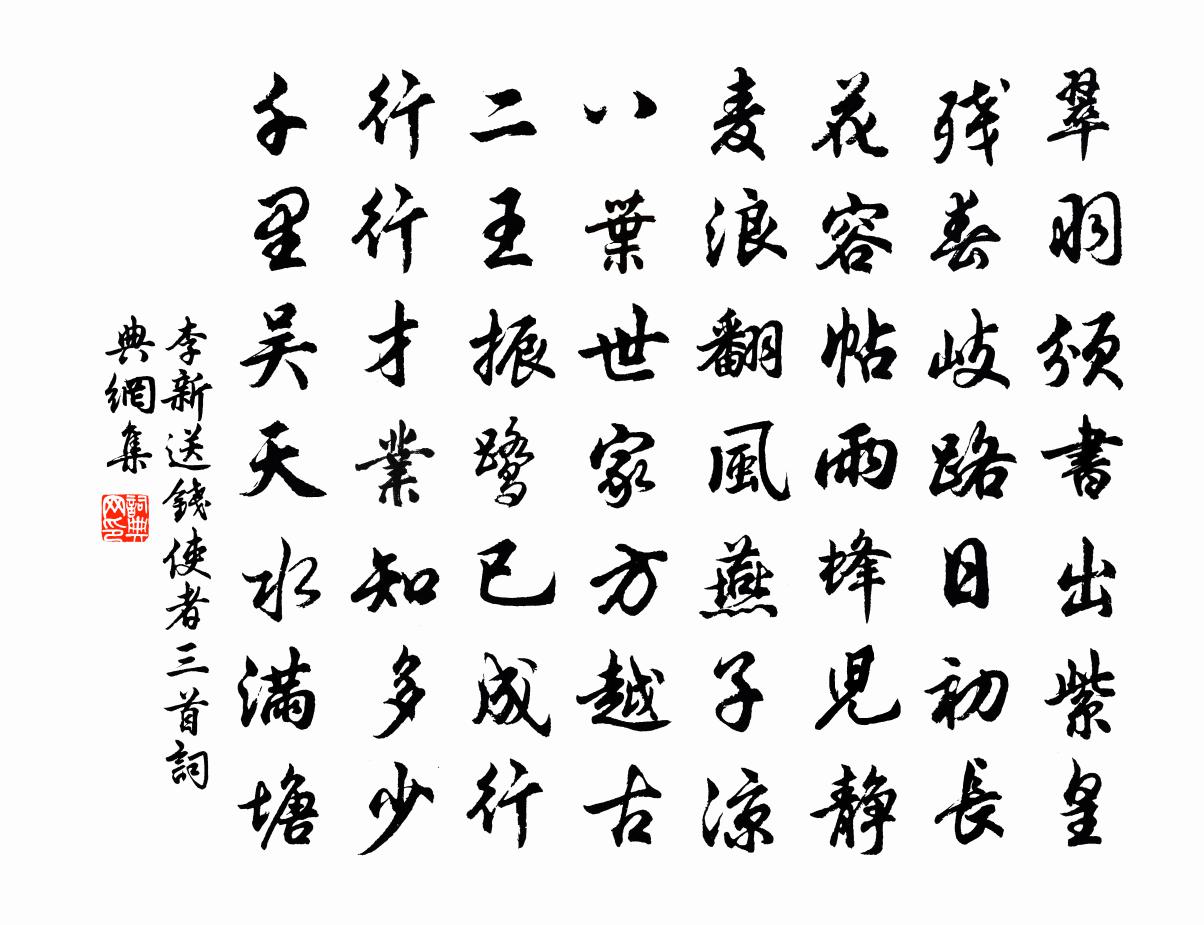 翠羽须書出紫皇
残春岐路日初長
花容帖雨蜂児静
麦浪翻風燕子涼
八葉世家方越古
二王振鹭已成行
行行才業知多少
千里吴天水满塘
李新送錢使者三首詞
典網集
詞典网印